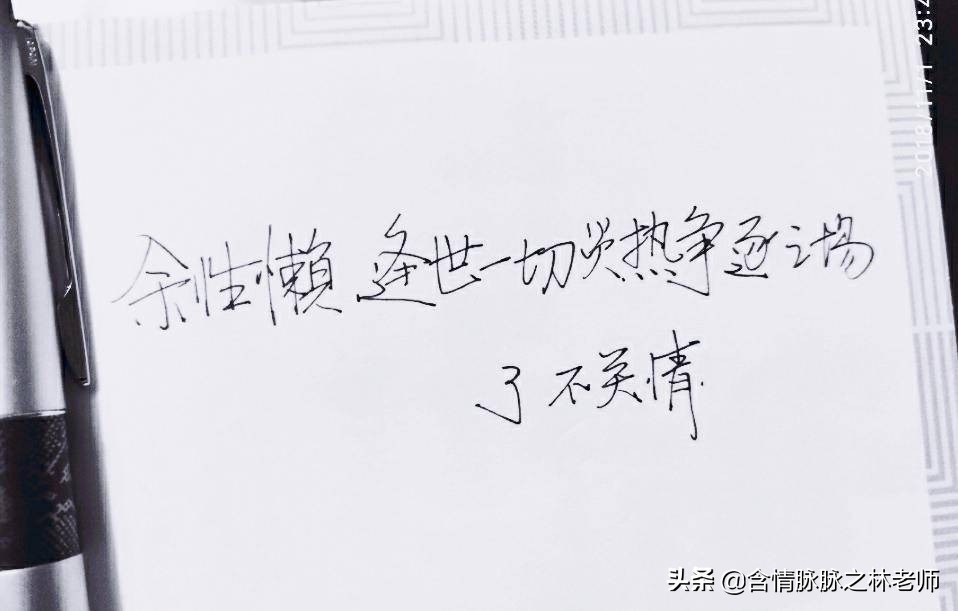 余性懒逢世一切炎热争逐之场
了不关情
2018/11/1 23:4
头条 @含情脉脉之林老师